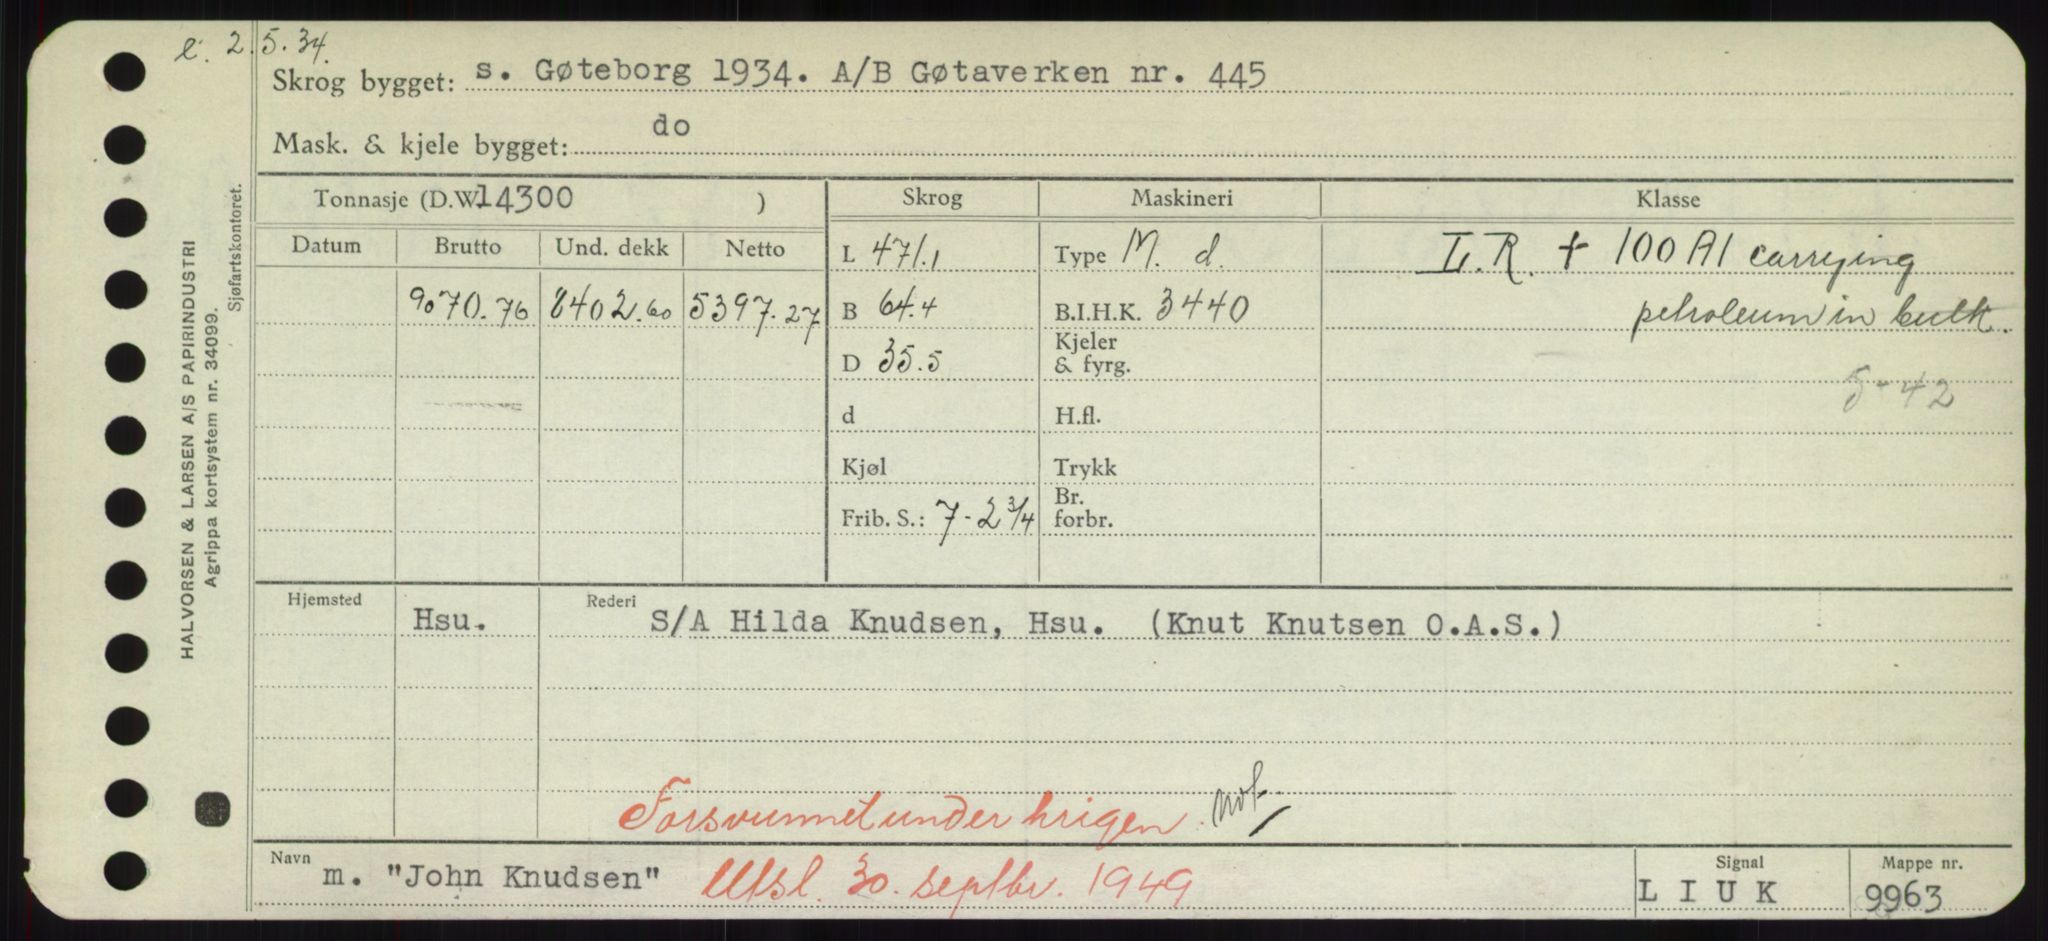 l. 2.5.34.
Skrog bygget: s. Gøteborg 1934. A/B Gøtaverken nr. 445
Mask. & kjele bygget: do
Tonnasje (D.W. 14300 ) Skrog Maskineri Klasse
Datum Brutto Und. dekk Netto L 471.1 Type M. d. L.R. + 100 A1 carrying
9070.76 8402.60 5397.27 B 64.4 B.I.H.K. 3440 petroleum in bulk.
D 35.5 Kjeler & fyrg. 5-42
d H.fl.
Kjøl Trykk
Frib. S.: 7-2 3/4 Br. forbr.
Hjemsted Hsu. Rederi S/A Hilda Knudsen, Hsu. (Knut Knutsen O.A.S.)
Forsvunnet under krigen. not.
Navn m. "John Knudsen" Utsl. 30. septbr. 1949 Signal L I U K Mappe nr. 9963
HALVORSEN & LARSEN A/S PAPIRINDUSTRI
Agrippa kortsystem nr. 34099.
Sjøfartskontoret.